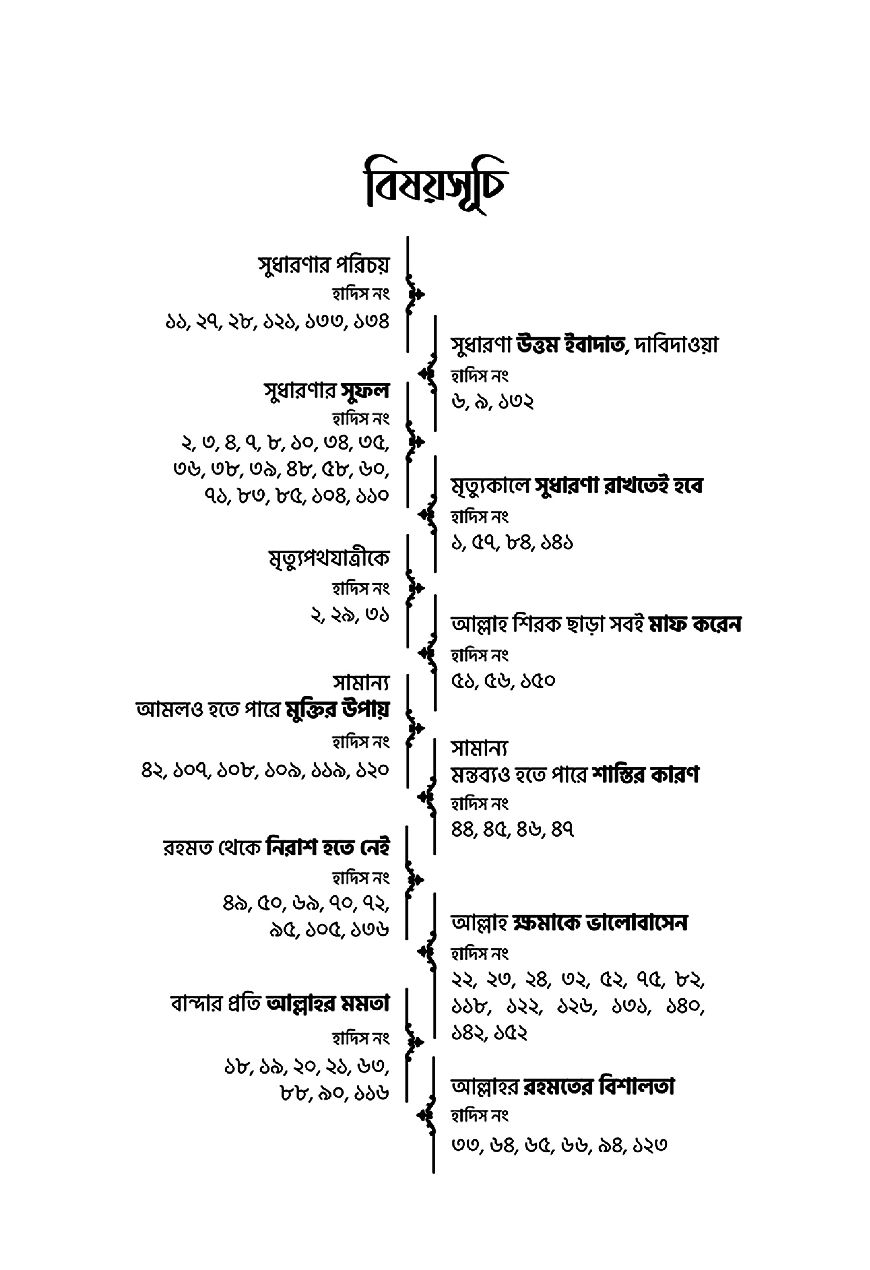 বিষয়সূচি
সুধারণার পরিচয়
হাদিস নং
১১, ২৭, ২৮, ১২১, ১৩৩, ১৩৪
সুধারণা উত্তম ইবাদাত, দাবিদাওয়া
হাদিস নং
৬, ৯, ১৩২
সুধারণার সুফল
হাদিস নং
২, ৩, ৪, ৭, ৮, ১০, ৩৪, ৩৫,
৩৬, ৩৮, ৩৯, ৪৮, ৫৮, ৬০,
৭১, ৮৩, ৮৫, ১০৪, ১১০
মৃত্যুকালে সুধারণা রাখতেই হবে
হাদিস নং
১, ৫৭, ৮৪, ১৪১
মৃত্যুপথযাত্রীকে
হাদিস নং
২, ২৯, ৩১
আল্লাহ শিরক ছাড়া সবই মাফ করেন
হাদিস নং
৫১, ৫৬, ১৫০
সামান্য
আমলও হতে পারে মুক্তির উপায়
হাদিস নং
৪২, ১০৭, ১০৮, ১০৯, ১১৯, ১২০
সামান্য
মন্তব্যও হতে পারে শাস্তির কারণ
হাদিস নং
৪৪, ৪৫, ৪৬, ৪৭
রহমত থেকে নিরাশ হতে নেই
হাদিস নং
৪৯, ৫০, ৬৯, ৭০, ৭২,
৯৫, ১০৫, ১৩৬
আল্লাহ ক্ষমাকে ভালোবাসেন
হাদিস নং
২২, ২৩, ২৪, ৩২, ৫২, ৭৫, ৮২,
১১৮, ১২২, ১২৬, ১৩১, ১৪০,
১৪২, ১৫২
বান্দার প্রতি আল্লাহর মমতা
হাদিস নং
১৮, ১৯, ২০, ২১, ৬৩,
৮৮, ৯০, ১১৬
আল্লাহর রহমতের বিশালতা
হাদিস নং
৩৩, ৬৪, ৬৫, ৬৬, ৯৪, ১২৩